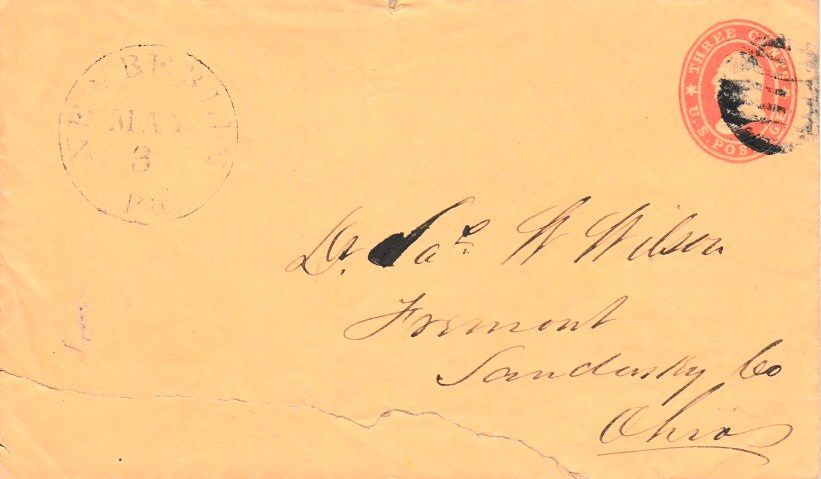 NEW BERLIN
MAY
8
Pa.
★ THREE CENTS ★ U.S. POSTAGE
Dr. Jas. W Wilson
Fremont
Sandusky Co
Ohio